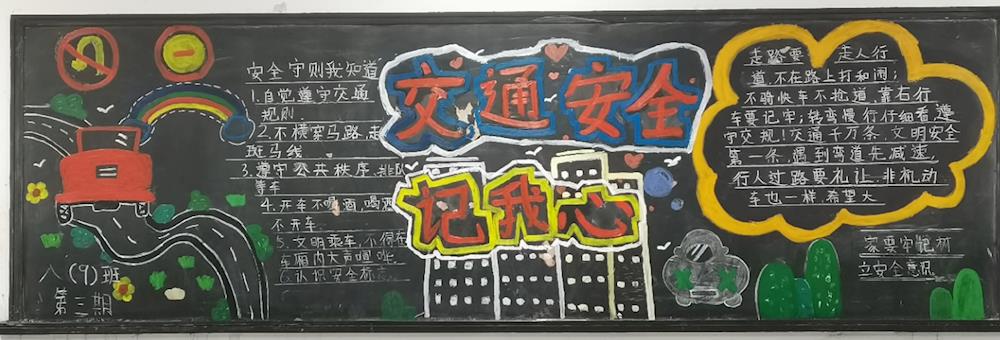 安全守则我知道
1.自觉遵守交通
规则.
2.不横穿马路,走
斑马线
3.遵守公共秩序,排队
等车
4.开车不喝酒,喝酒
不开车.
5.文明乘车,不得在
车厢内大声喧哗.
6.认识安全标志
八(9)班
第三期
交通安全
记我心
走路要 走人行
道,不在路上打和闹;
不骑快车不抢道,靠右行
车要记牢;转弯慢行仔细看遵
守交规!交通千万条,文明安全
第一条,遇到弯道先减速,
行人过路要礼让,非机动
车也一样,希望大
家要牢记树
立安全意识